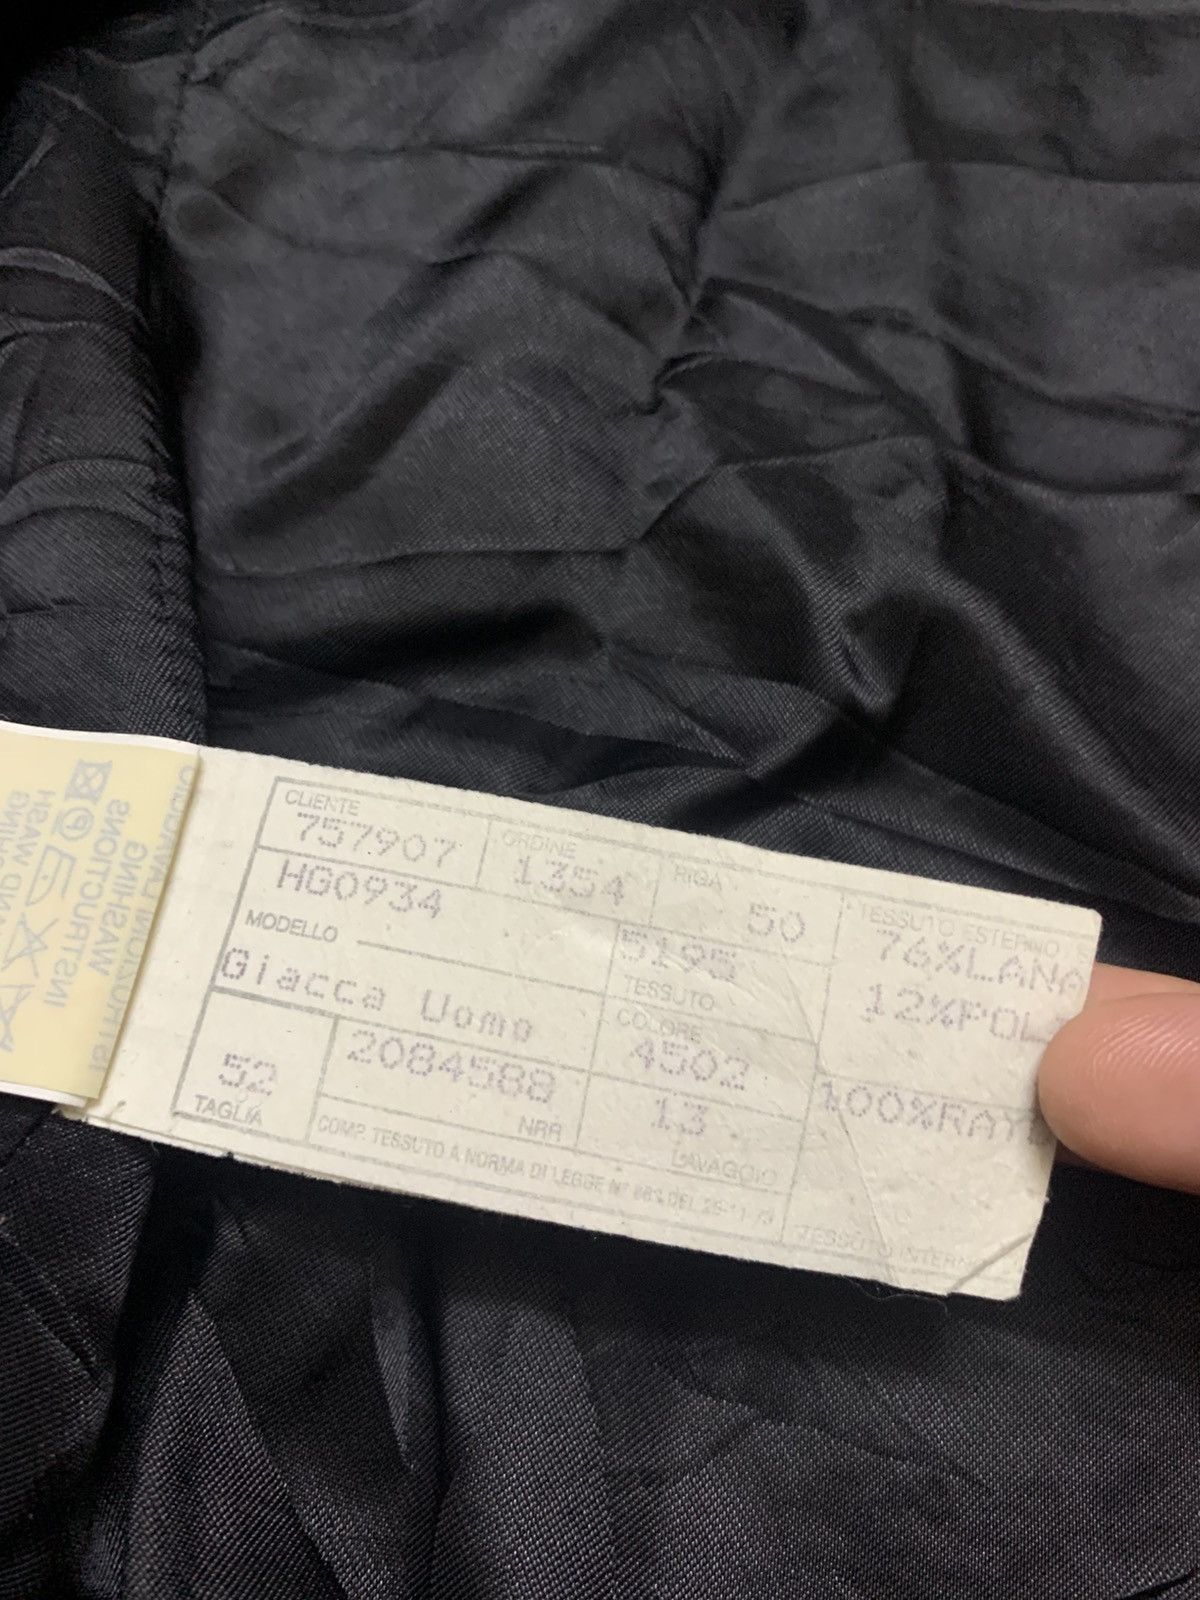 CLIENTE
757907
ORDINE
1354
RIGA
50
HG0934
MODELLO
5195
TESSUTO
Giacca Uomo
COLORE
4502
52
TAGLIA
2084588
NRR
13
LAVAGGIO
COMP. TESSUTO A NORMA DI LEGGE N° DEL
TESSUTO ESTERNO
76%LANA
12%POL
100%RAY
TESSUTO INTERN
WASHING
INSTRUCTIONS
WASH